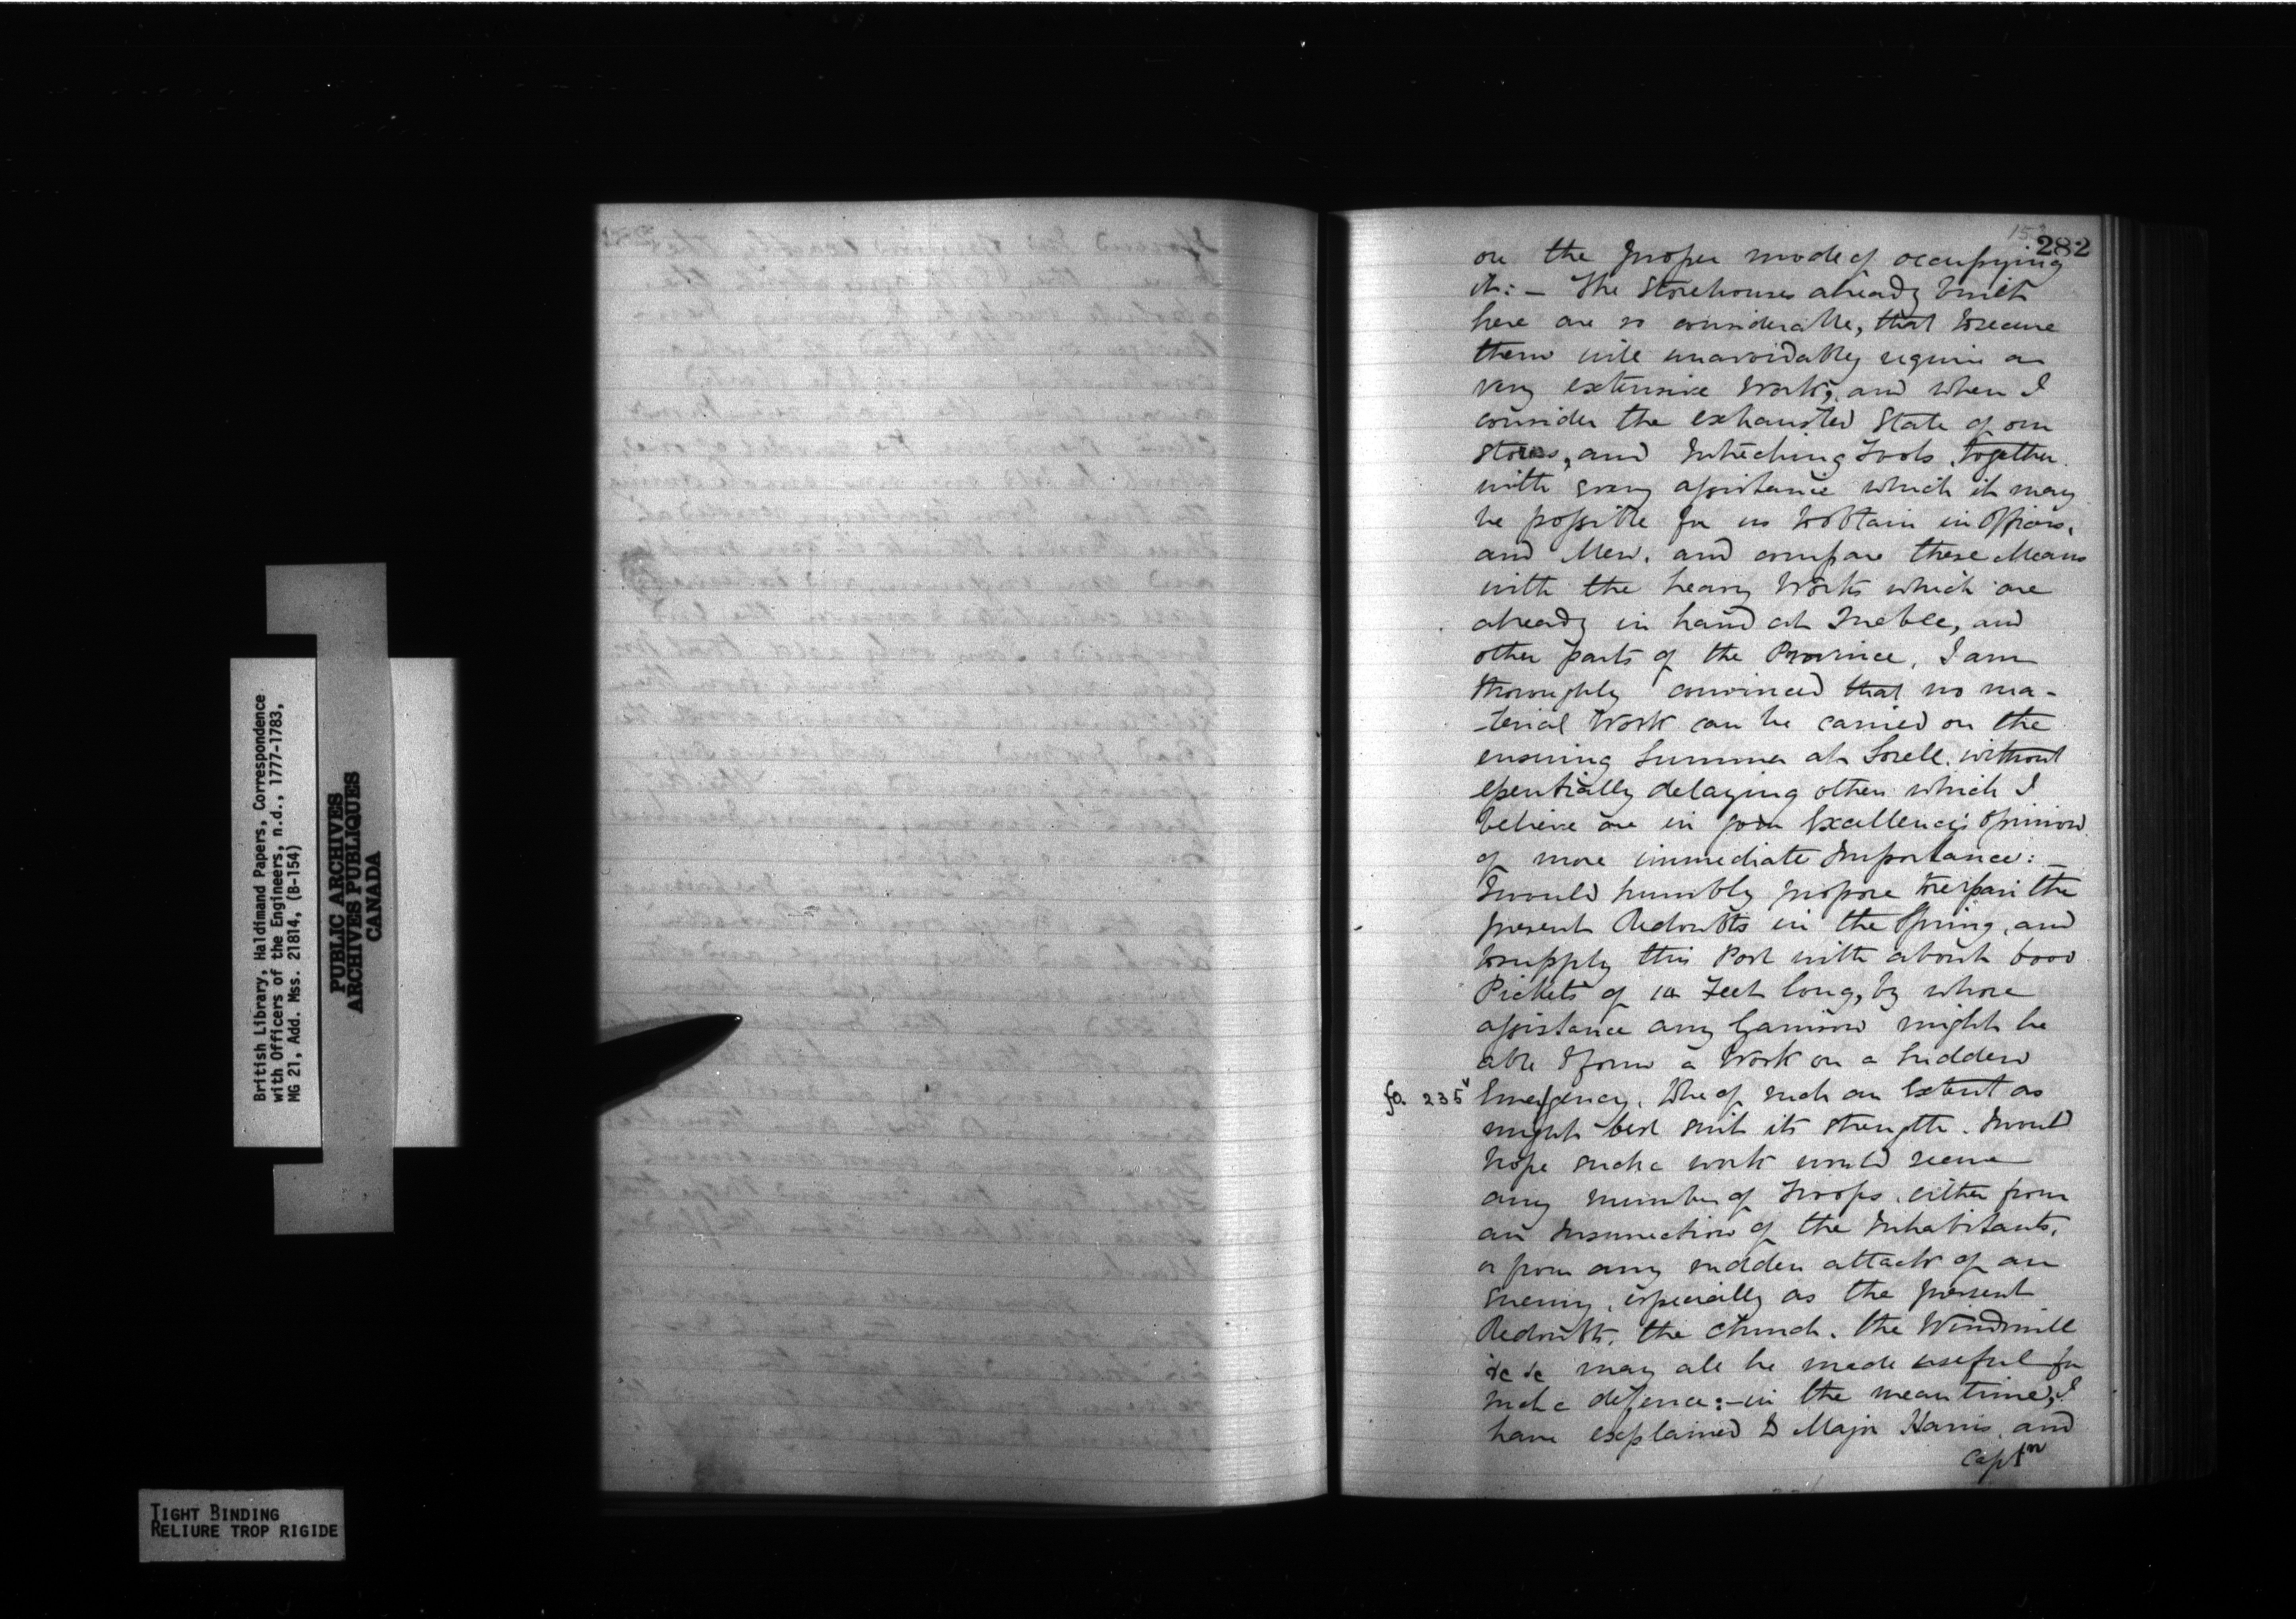 282
on the proper mode of occupying
it:– The Storehouses already built
here are so considerable, that to secure
them will unavoidably require a
very extensive Work, and when I
consider the exhausted State of our
Stores, and Intrenching Tools, together
with every assistance which it may
be possible for us to obtain in Officers,
and Men, and compare these Means
with the heavy Works which are
already in hand at Quebec, and
other parts of the Province, I am
thoroughly convinced that no ma-
-terial Work can be carried on the
ensuing Summer at Sorell, without
essentially delaying others which I
believe are in your Excellency's Opinion
of more immediate Importance:–
I would humbly propose to repair the
present Redoubts in the Spring, and
to supply this Post with about 6000
Pickets of 10 Feet long, by whose
assistance any Garrison might be
able to form a Work on a sudden
fo. 235v Emergency, to be of such an Extent as
might best suit its strength. I would
hope such a work would secure
any number of Troops, either from
an Insurrection of the Inhabitants,
or from any sudden attack of an
Enemy, especially as the present
Redoubts, the Church, the Windmill
&c &c may all be made useful for
such a defence:– in the mean time, I
have explained to Major Harris, and
Captn
British Library, Haldimand Papers, Correspondence
with Officers of the Engineers, n.d., 1777-1783,
MG 21, Add. Mss. 21814, (B-154)
PUBLIC ARCHIVES
ARCHIVES PUBLIQUES
CANADA
TIGHT BINDING
RELIURE TROP RIGIDE